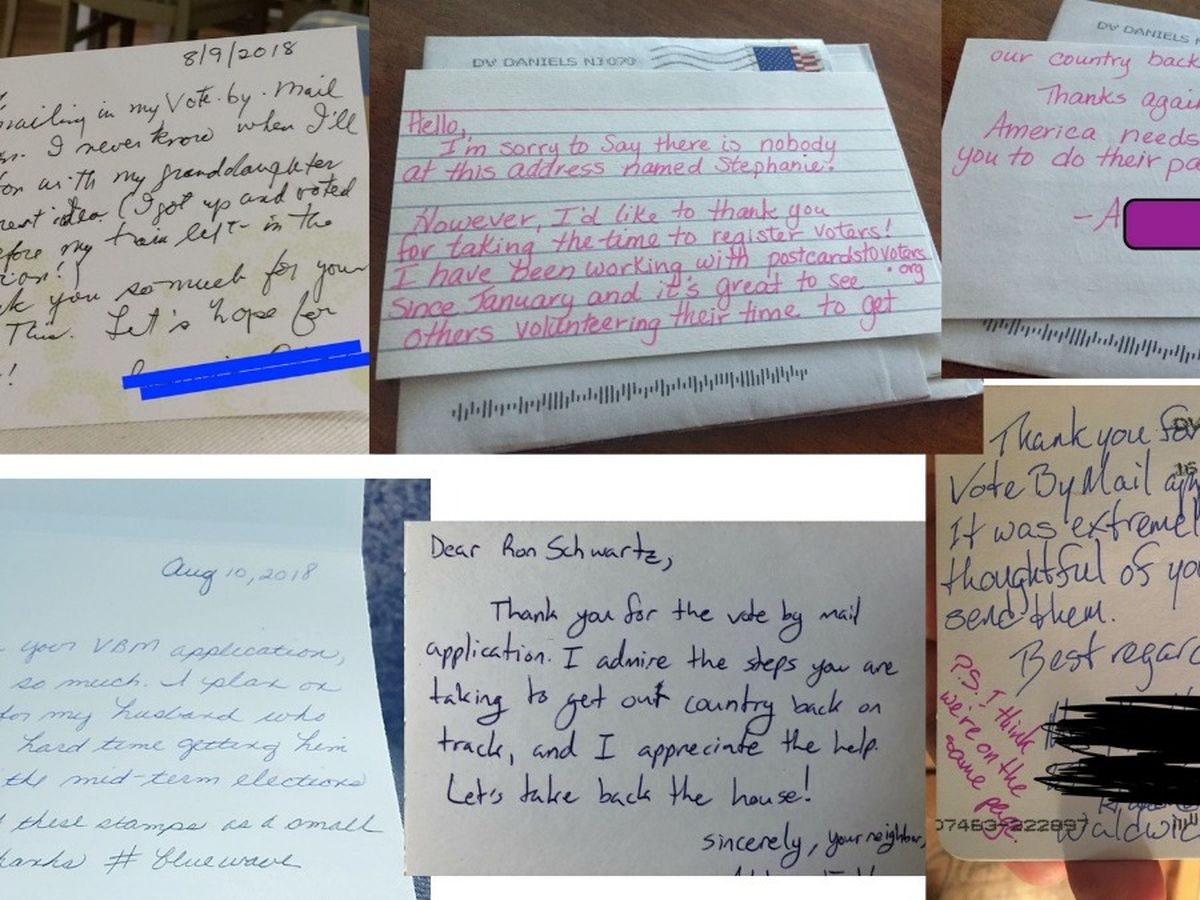 8/9/2018
mailing in my Vote. by. Mail
I never know when I'll
with my granddaughter
idea. (I got up and voted
before my train left - in the
you so much for your
This. Let's hope for
!
DV DANIELS NJ 070
Hello,
I'm sorry to say there is nobody
at this address named Stephanie.
However, I'd like to thank you
for taking the time to register voters!
I have been working with postcardstovoters
.org
since January and it's great to see
others volunteering their time to get
DV DANIELS N
our country back
Thanks again
America needs
you to do their pa
-A
Aug 10, 2018
your VBM application,
so much. I plan on
for my husband who
hard time getting him
the mid-term elections
these stamps as a small
hanks # bluewave
Dear Ron Schwartz,
Thank you for the vote by mail
application. I admire the steps you are
taking to get out country back on
track, and I appreciate the help.
Let's take back the house!
sincerely, your neighbor,
Thank you for
Vote By Mail
It was extremel
thoughtful of yo
send them.
Best regar
P.S. I think
we're on the
same page.
Waldwic